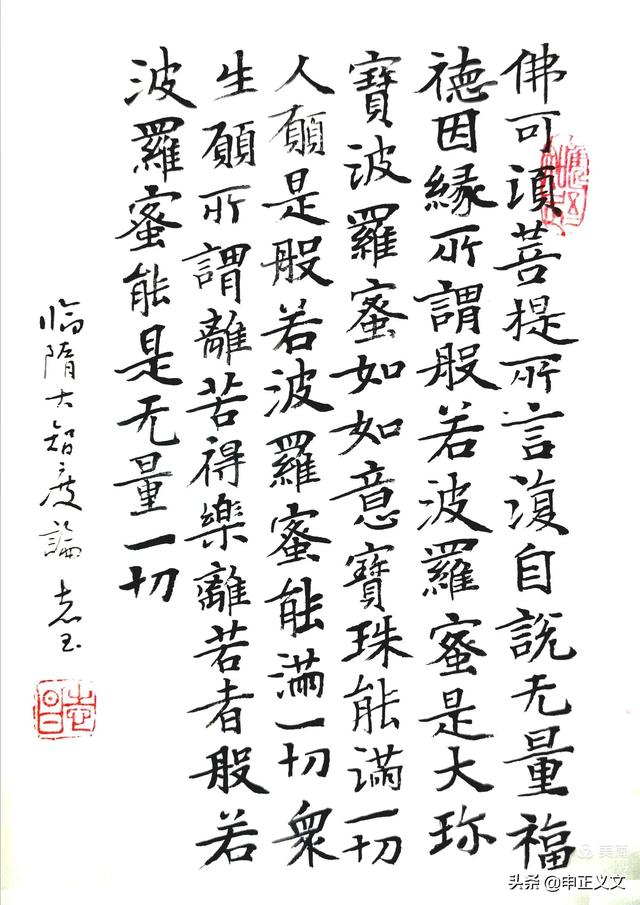 佛可湏菩提所言復自説无量福
德因緣所謂般若波羅蜜是大珎
寶波羅蜜如如意寶珠能滿一切
人願是般若波羅蜜能滿一切衆
生願所謂離苦得樂離若者般若
波羅蜜能是无量一切
临隋大智度論 志玉
美篇
头条@申正义文